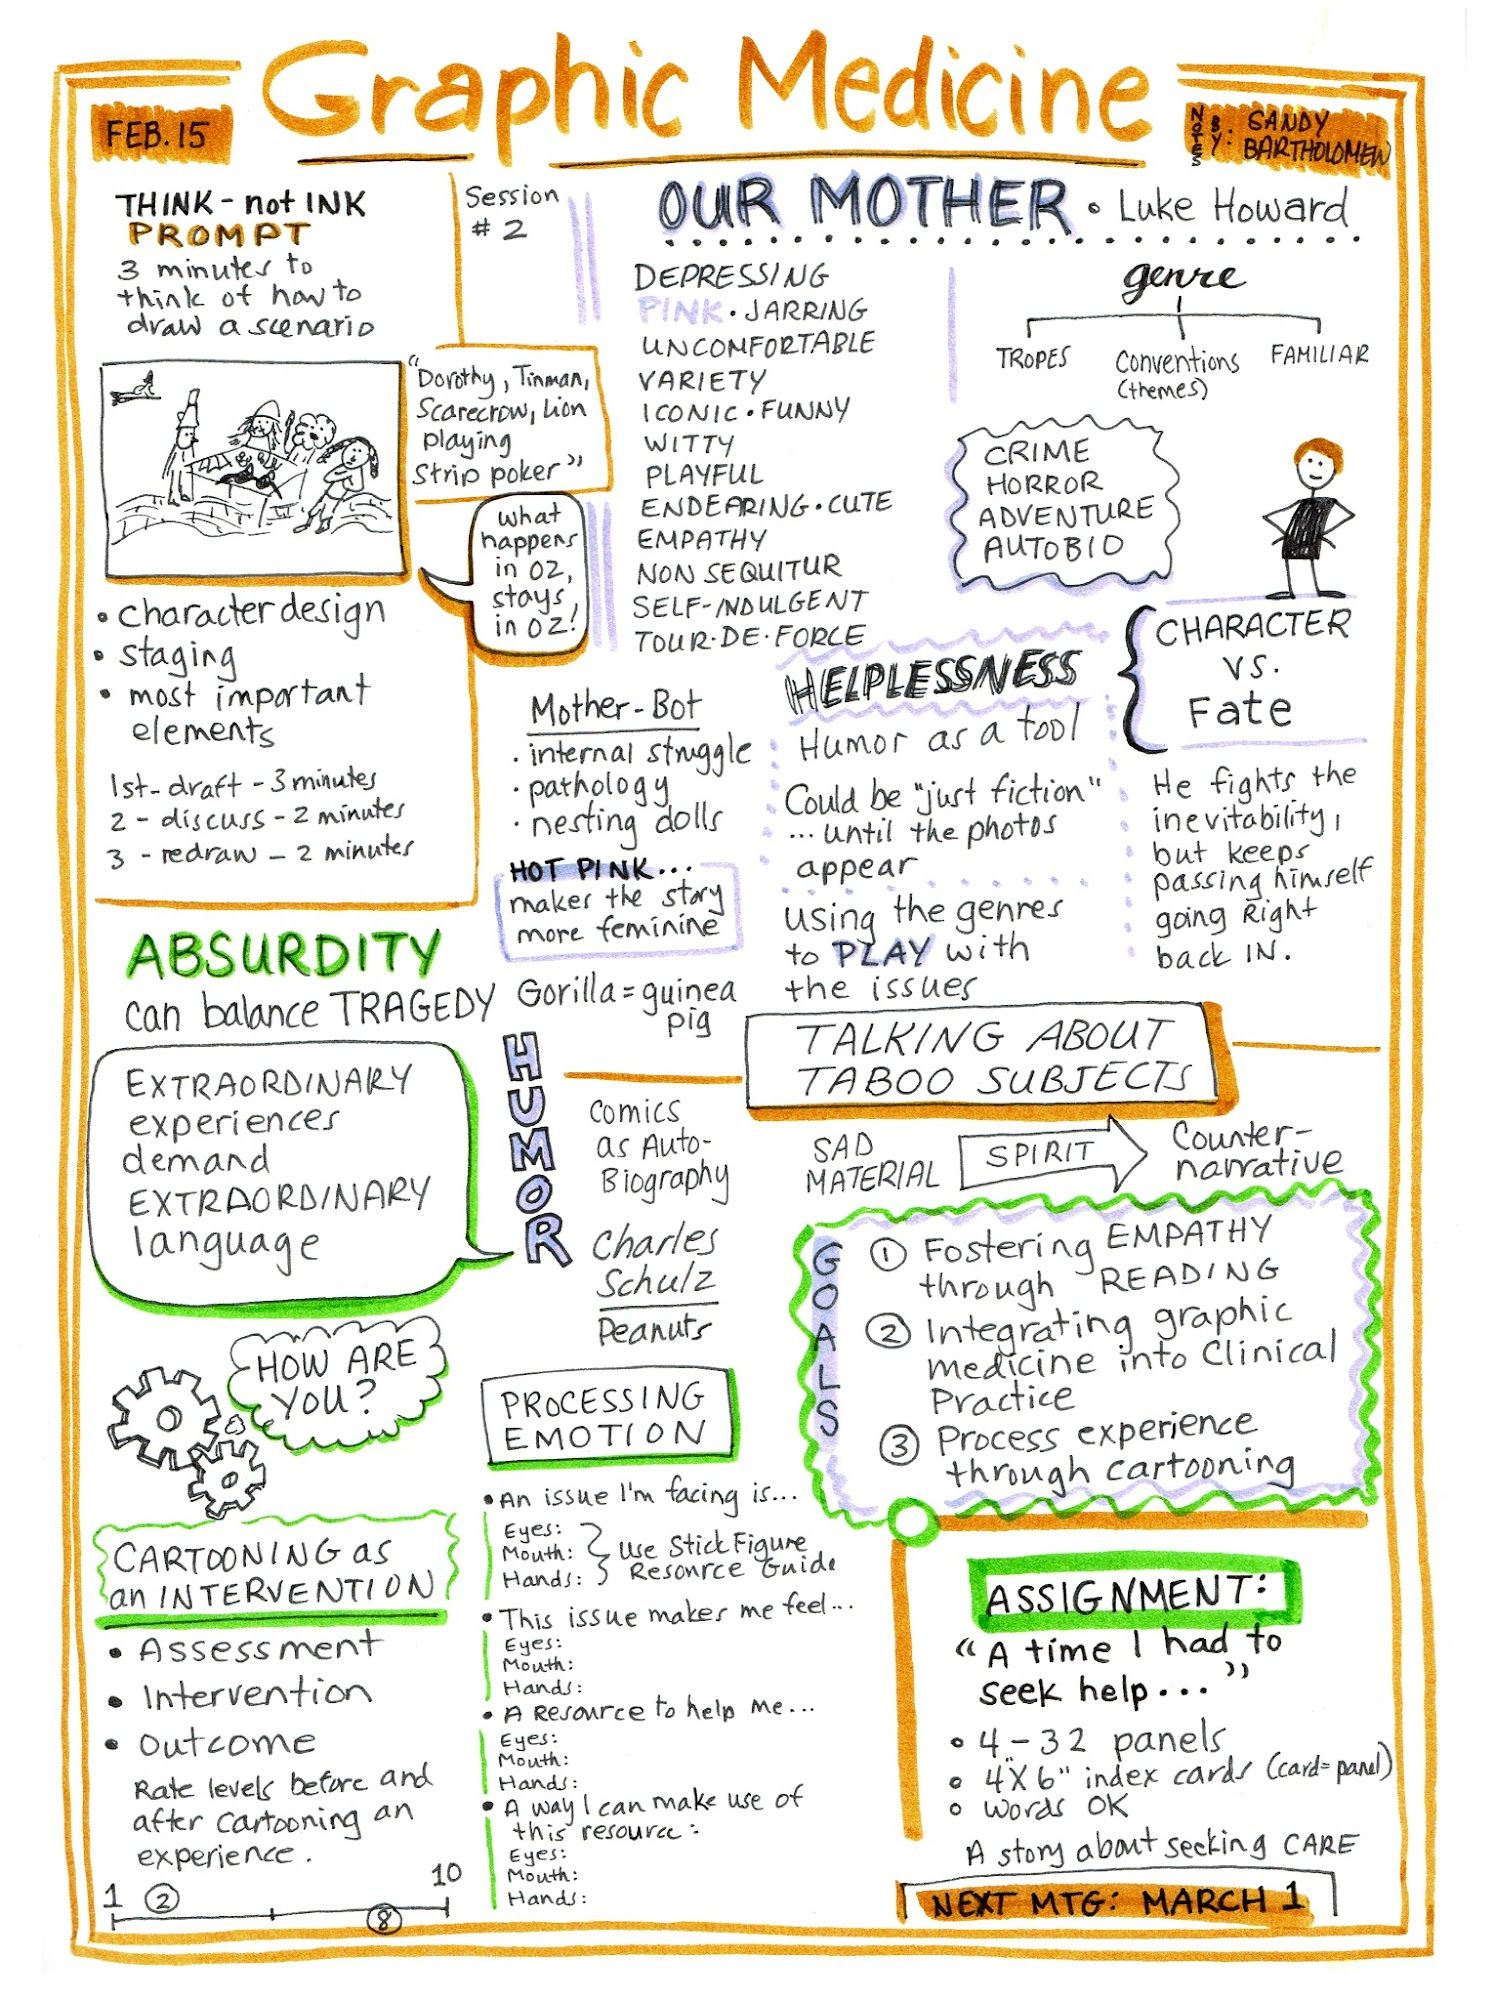 Graphic Medicine
FEB. 15
NOTES BY: SANDY
BARTHOLOMEW
THINK - not INK
PROMPT
3 minutes to
think of how to
draw a scenario
Session
# 2
"Dorothy, Tinman,
Scarecrow, Lion
playing
Strip poker"
what
happens
in OZ,
stays
in OZ!
• Character design
• staging
• most important
elements
1st - draft - 3 minutes
2 - discuss - 2 minutes
3 - redraw - 2 minutes
OUR MOTHER • Luke Howard
DEPRESSING
PINK • JARRING
UNCOMFORTABLE
VARIETY
ICONIC • FUNNY
WITTY
PLAYFUL
ENDEARING • CUTE
EMPATHY
NON SEQUITUR
SELF-INDULGENT
TOUR-DE-FORCE
genre
TROPES
Conventions
(themes)
FAMILIAR
CRIME
HORROR
ADVENTURE
AUTOBIO
CHARACTER
VS.
Fate
He fights the
inevitability,
but keeps
passing himself
going Right
back IN.
Mother-Bot
• internal struggle
• pathology
• nesting dolls
HOT PINK...
makes the story
more feminine
Gorilla = guinea
pig
HELPLESSNESS
Humor as a tool
Could be "just fiction"
... until the photos
appear
using the genres
to PLAY with
the issues
ABSURDITY
can balance TRAGEDY
EXTRAORDINARY
experiences
demand
EXTRAORDINARY
language
HUMOR
Comics
as Auto-
Biography
Charles
Schulz
Peanuts
TALKING ABOUT
TABOO SUBJECTS
SAD
MATERIAL
SPIRIT
Counter-
narrative
GOALS
① Fostering EMPATHY
through READING
② Integrating graphic
medicine into Clinical
Practice
③ Process experience
through cartooning
HOW ARE
YOU?
CARTOONING as
an INTERVENTION
• Assessment
• Intervention
• Outcome
Rate levels before and
after Cartooning an
experience.
1 ② ⑧ 10
PROCESSING
EMOTION
• An issue I'm facing is...
Eyes:
Mouth: } Use Stick Figure
Hands: } Resource Guide
• This issue makes me feel...
Eyes:
Mouth:
Hands:
• A Resource to help me...
Eyes:
Mouth:
Hands:
• A way I can make use of
this resource:
Eyes:
Mouth:
Hands:
ASSIGNMENT:
"A time I had to
seek help..."
• 4 - 32 panels
• 4" X 6" index cards (card=panel)
• words OK
A story about seeking CARE
NEXT MTG: MARCH 1